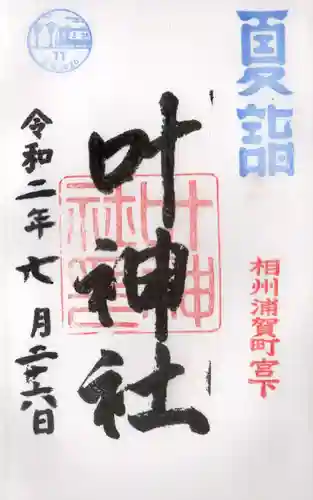 夏詣
相州浦賀町宮下
叶神社
叶神社
令和二年七月二十六日